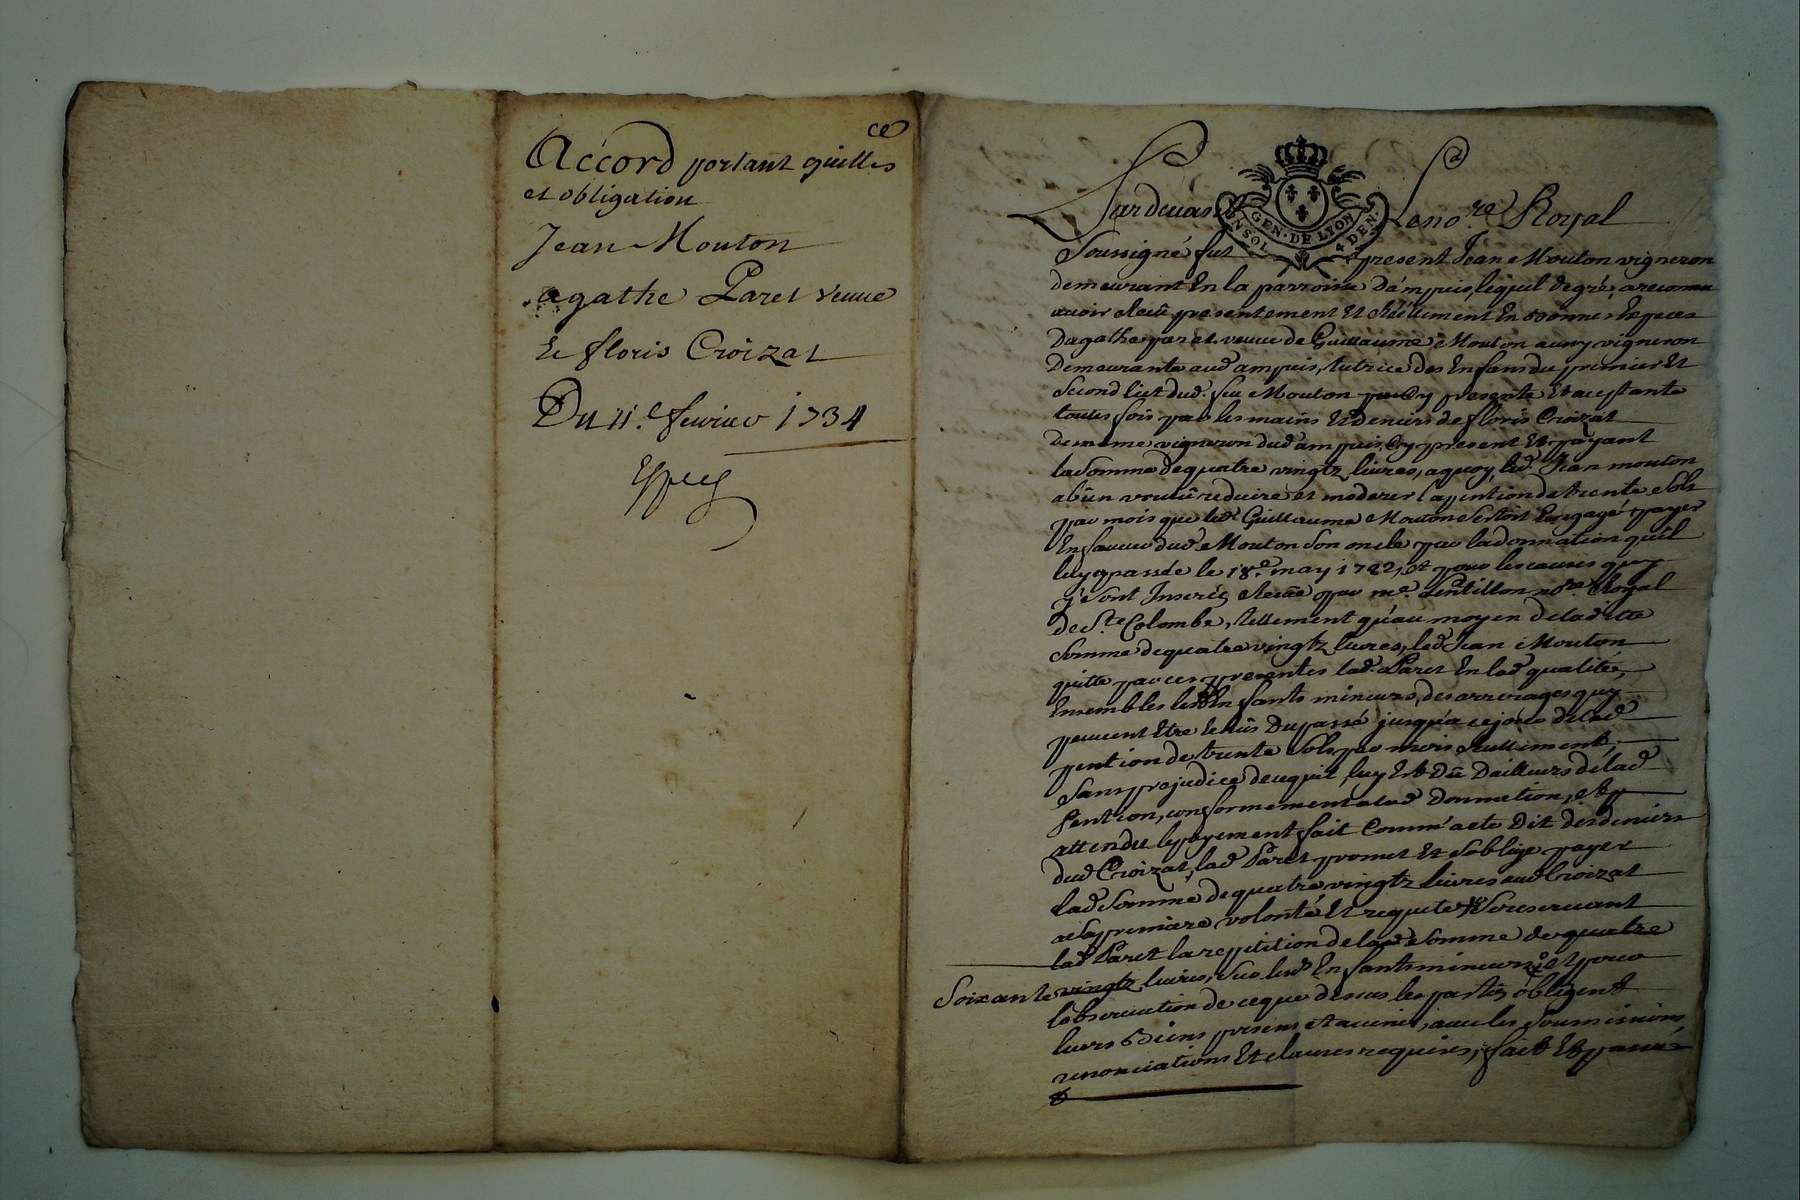 ce
Accord portant quittes
et obligation
Jean Mouton
agathe Paret veuve
Et floris Croizat
Du 11.e fevrier 1734
Pardevant Le no.re Royal
GEN. DE LYON
UN SOL 4 DEN.
Soussigné fut present Jean Mouton vigneron
demeurant En la parroisse d'ampuis, lequel de gré, a reconnu
avoir Receu presentement Et Réellement En bonnes Especes
Dagathe paret veuve de Guillaume Mouton aussy vigneron
Demeurante aud ampuis, tutrice des Enfans du premier Et
Second lict dud. feu Mouton presente Et aceptante
toutes fois par les mains Et deniers de floris Croizat
de meme vigneron dud ampuis, Cy present Et payant
la Somme de quatre vingtz livres, a quoy led. Jean mouton
a bien voulu reduire et moderer la pention de trente Sols
par mois que led. Guillaume Mouton S'estoit Engagé payer
En faveur dud Mouton Son oncle par la donnation qu'il
luy a passée le 18.e may 1722, et pour les causes quy
y Sont Inserés Receue par me. Lentillon no.re Royal
de S.te Colombe, tellement qu'au moyen de laditte
Somme de quatre vingtz livres, led Jean Mouton
quitte par ces presentes lad. Paret En lad qualité,
Ensembles lesd Enfants mineurs, des arrerages quy
peuvent Etre Echûs Du passé jusqu'a ce jour de lad
pention de trente Sols par mois Seullement,
Sans prejudice de ce quil luy Est Dû D'ailleurs de lad
Pention, conformement a lad Donnation, Et
attendu le payement fait Comm'a eté Dit des deniers
dud Croizat, lad Paret promet Et S'oblige payer
lad Somme de quatre vingtz livres aud Croizat
a Sa premiere volonté Et requete Se reservant
lad Paret la repetition de lad Somme de quatre
Soixante vingtz livres, Sur lesd Enfants mineurs, et pour
l'observation de ce que dessus les parties obligent
leurs Biens presens et avenir, avec les Soumissions,
renonciations Et clauses requises, fait Et passé